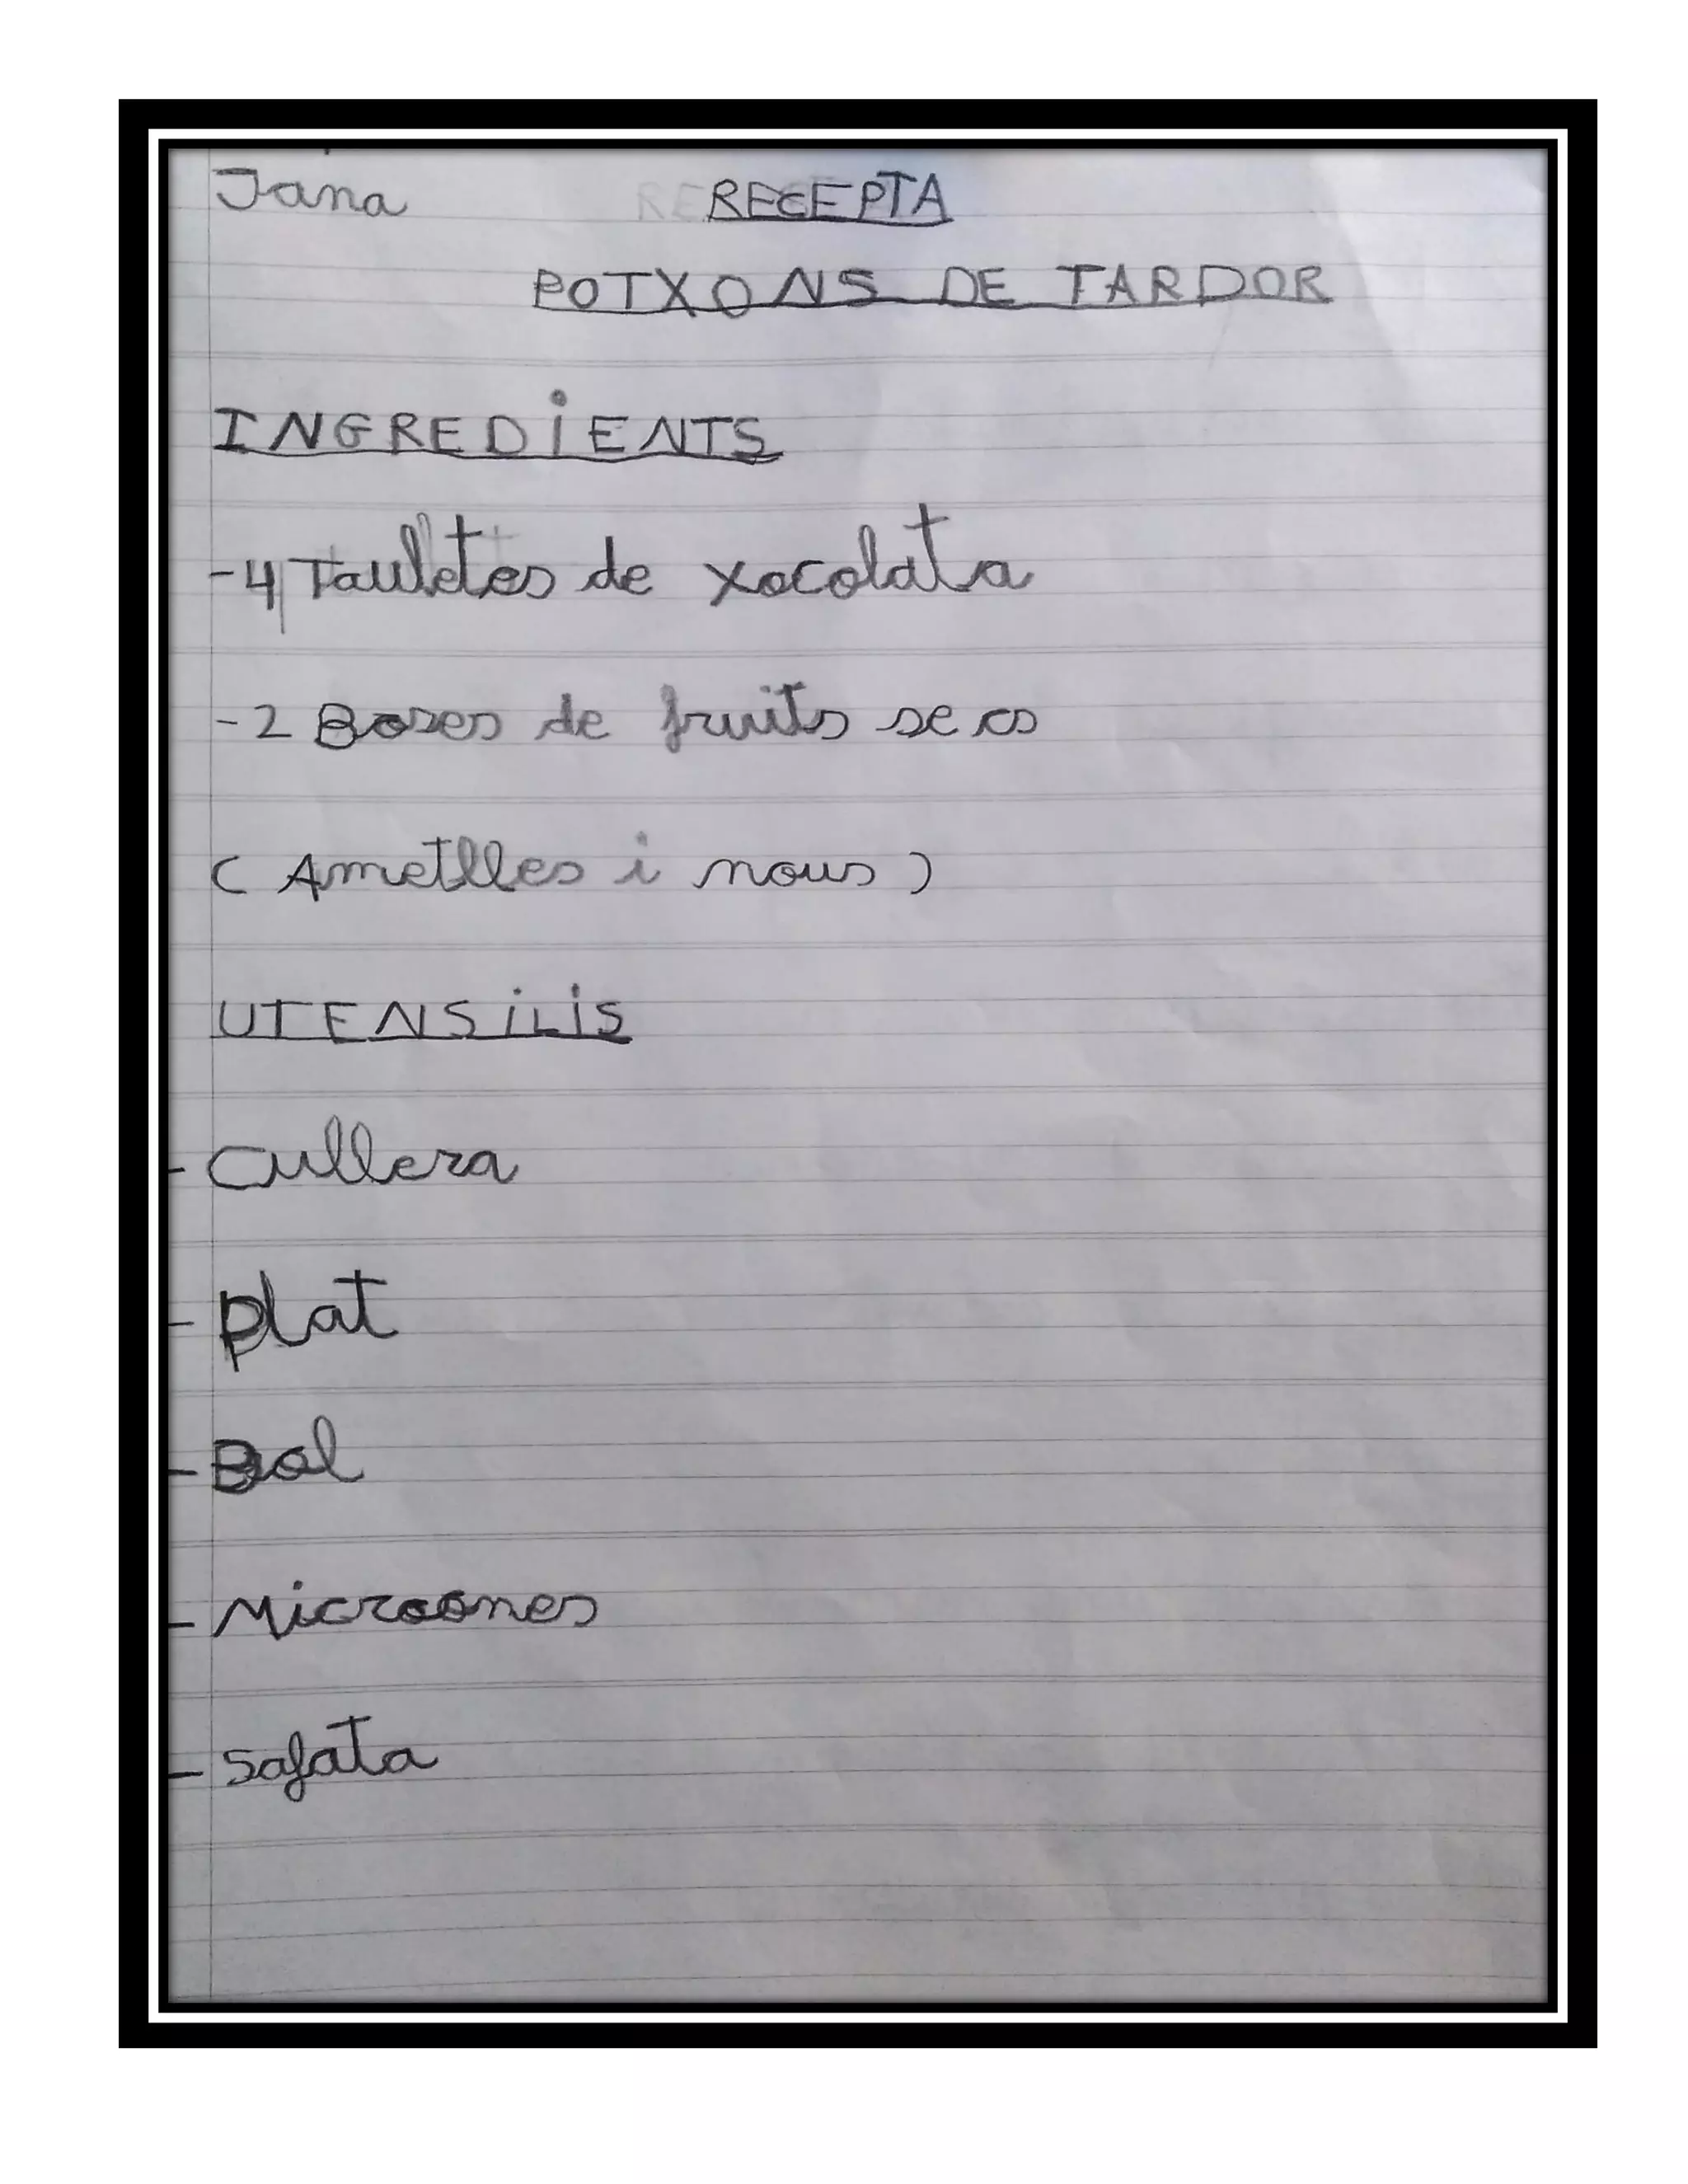 Jana RECEPTA
POTXONS DE TARDOR
INGREDiENTS
-4 Tauletes de xocolata
-2 Bosses de fruits secs
( Ametlles i nous )
UTENSiLiS
- Cullera
- plat
- Bol
- Microones
- Safata